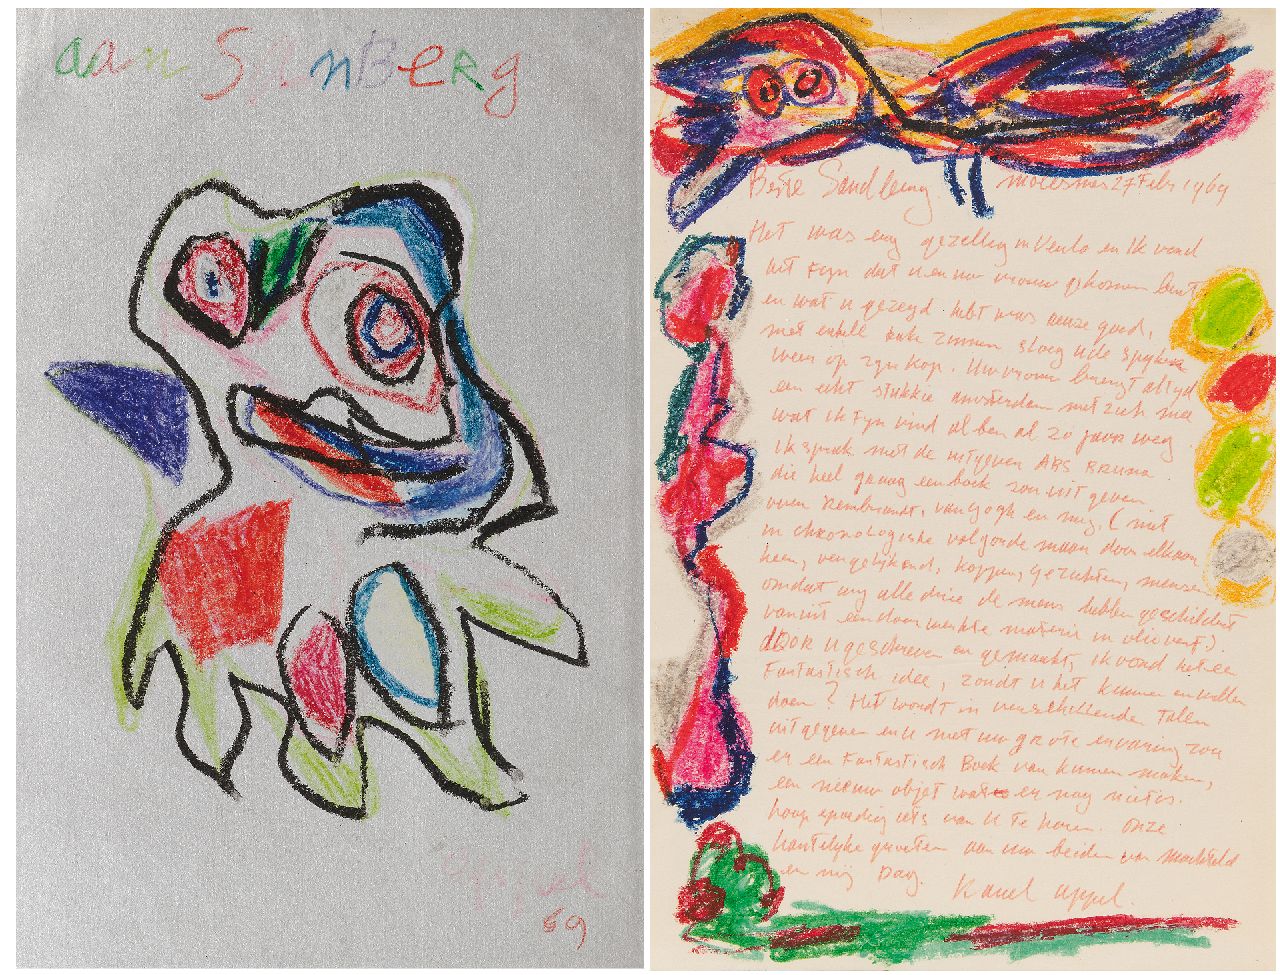 aan SANBERg
Appel
69
Beste Sandberg Molesmes 27 Feb 1969
Het was erg gezellig in Venlo en ik vond
het Fyn dat u en uw vrouw gekomen bent
en wat u gezegd hebt was reuze goed,
met enkele zinnen sloeg u de spykers
weer op zyn kop. Uw vrouw brengt altyd
een echt stukkie amsterdam met zich mee
wat ik Fyn vind al ben al 20 jaar weg
Ik sprak met de uitgever ABS BRUNA
die heel graag een boek zou uit geven
over Rembrandt, van gogh en my. (niet
in chronologische volgorde maar door elkaar
heen, vergelykend, koppen, gezichten, mensen
omdat wy alle drie de mens hebben geschildert
vanuit een doorwerkte materie in olieverf).
dOOR u geschreven en gemaakt, ik vond het een
Fantastisch idee, zoudt u het kunnen en willen
doen? Het wordt in verschillenden Talen
uitgegeven en u met uw grote ervaring zou
er een Fantastisch Boek van kunnen maken,
een nieuw objet wat er nog niet is.
hoop spoedig iets van u te horen. Onze
hartelyke groeten aan uw beiden van Machteld
en mij Dag. Karel Appel.